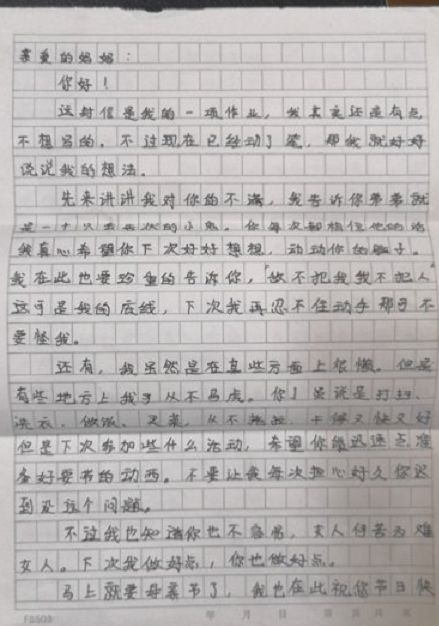 亲爱的妈妈：
你好！
这封信是我的一项作业，我其实还是有点
不想写的。不过现在已经动了笔，那我就好好
说说我的想法。
先来讲讲我对你的不满，我告诉你弟弟就
是一个
我真心希望你下次好好想想，动动你的脑子。
我在此也要珍重的告诉你，“敌不犯我我不犯人”
这可是我的底线，下次我再忍不住动手那可不
要怪我。
还有，我虽然是在某些方面上很懒。但是
有些地方上我可从不马虎。你
洗衣、做饭、买菜，从不拖拉，干得又快又好
但是下次参加些什么活动，希望你能迅速点准
备好要带的动西。不要让我每次担心好久你迟
到没这个问题。
不过我也知道你也不容易，女人何苦为难
女人。下次我做好点，你也做好点。
马上就要母亲节了，我也在此祝您节日快
年 月 日 第 页 共 页